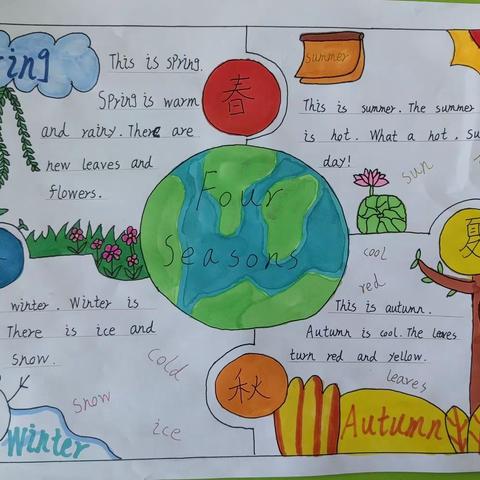 ring
This is spring.
Spring is warm
and rainy. There are
new leaves and
flowers.
春
summer
This is summer. The summer
is hot. What a hot, su
day!
sun
Four
Seasons
夏
winter. Winter is
There is ice and
snow.
cold
snow
ice
Winter
秋
cool
red
This is autumn.
Autumn is cool. The leaves
turn red and yellow.
leaves
Autumn